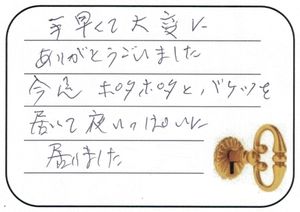 手早くて大変に
ありがとうごいました
今迄 ポタポタと バケツを
居いて夜いっぱいに
居りました